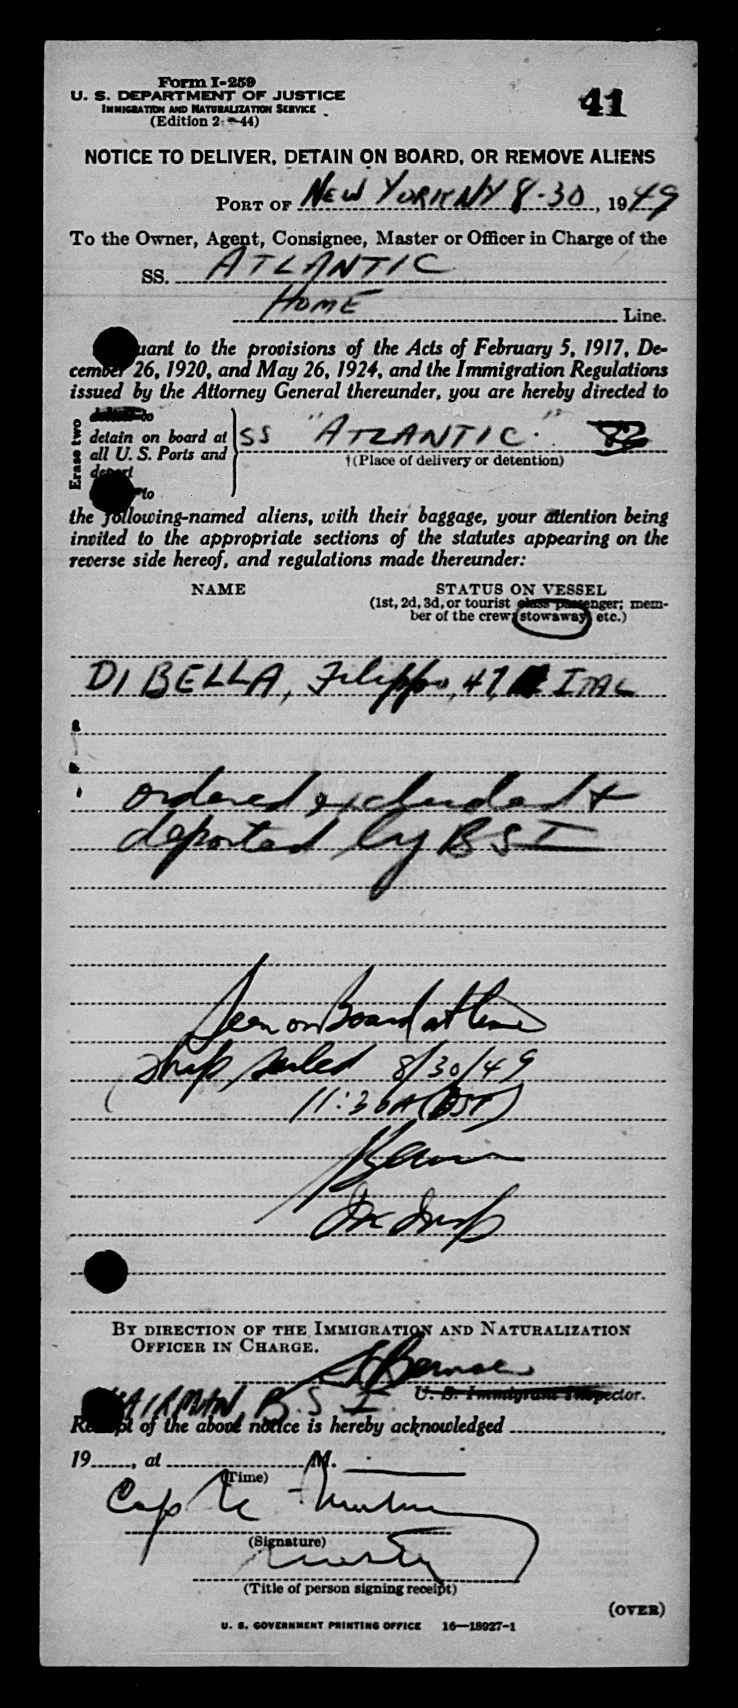 Form I-259
41
U. S. DEPARTMENT OF JUSTICE
IMMIGRATION AND NATURALIZATION SERVICE
(Edition 2- -44)
NOTICE TO DELIVER, DETAIN ON BOARD, OR REMOVE ALIENS
PORT OF NEW YORK NY 8-30, 1949
To the Owner, Agent, Consignee, Master or Officer in Charge of the
SS. ATLANTIC
HOME Line.
uant to the provisions of the Acts of February 5, 1917, De-
cember 26, 1920, and May 26, 1924, and the Immigration Regulations
issued by the Attorney General thereunder, you are hereby directed to
Erase two
to
detain on board at SS "ATLANTIC"
all U. S. Ports and
†(Place of delivery or detention)
deport
to
the following-named aliens, with their baggage, your attention being
invited to the appropriate sections of the statutes appearing on the
reverse side hereof, and regulations made thereunder:
NAME STATUS ON VESSEL
(1st, 2d, 3d, or tourist class passenger; mem-
ber of the crew; stowaway, etc.)
DI BELLA, Filippo, 47, ITAL
ordered excluded +
deported by BSI
Seen on Board at time
ship sailed 8/30/49
11:30A (DST)
BY DIRECTION OF THE IMMIGRATION AND NATURALIZATION
OFFICER IN CHARGE.
CHAIRMAN, B. S. I. U. S. Immigrant Inspector.
Receipt of the above notice is hereby acknowledged
19 , at M.
(Time)
Cap
(Signature)
Master
(Title of person signing receipt)
(OVER)
U. S. GOVERNMENT PRINTING OFFICE 16—18927-1